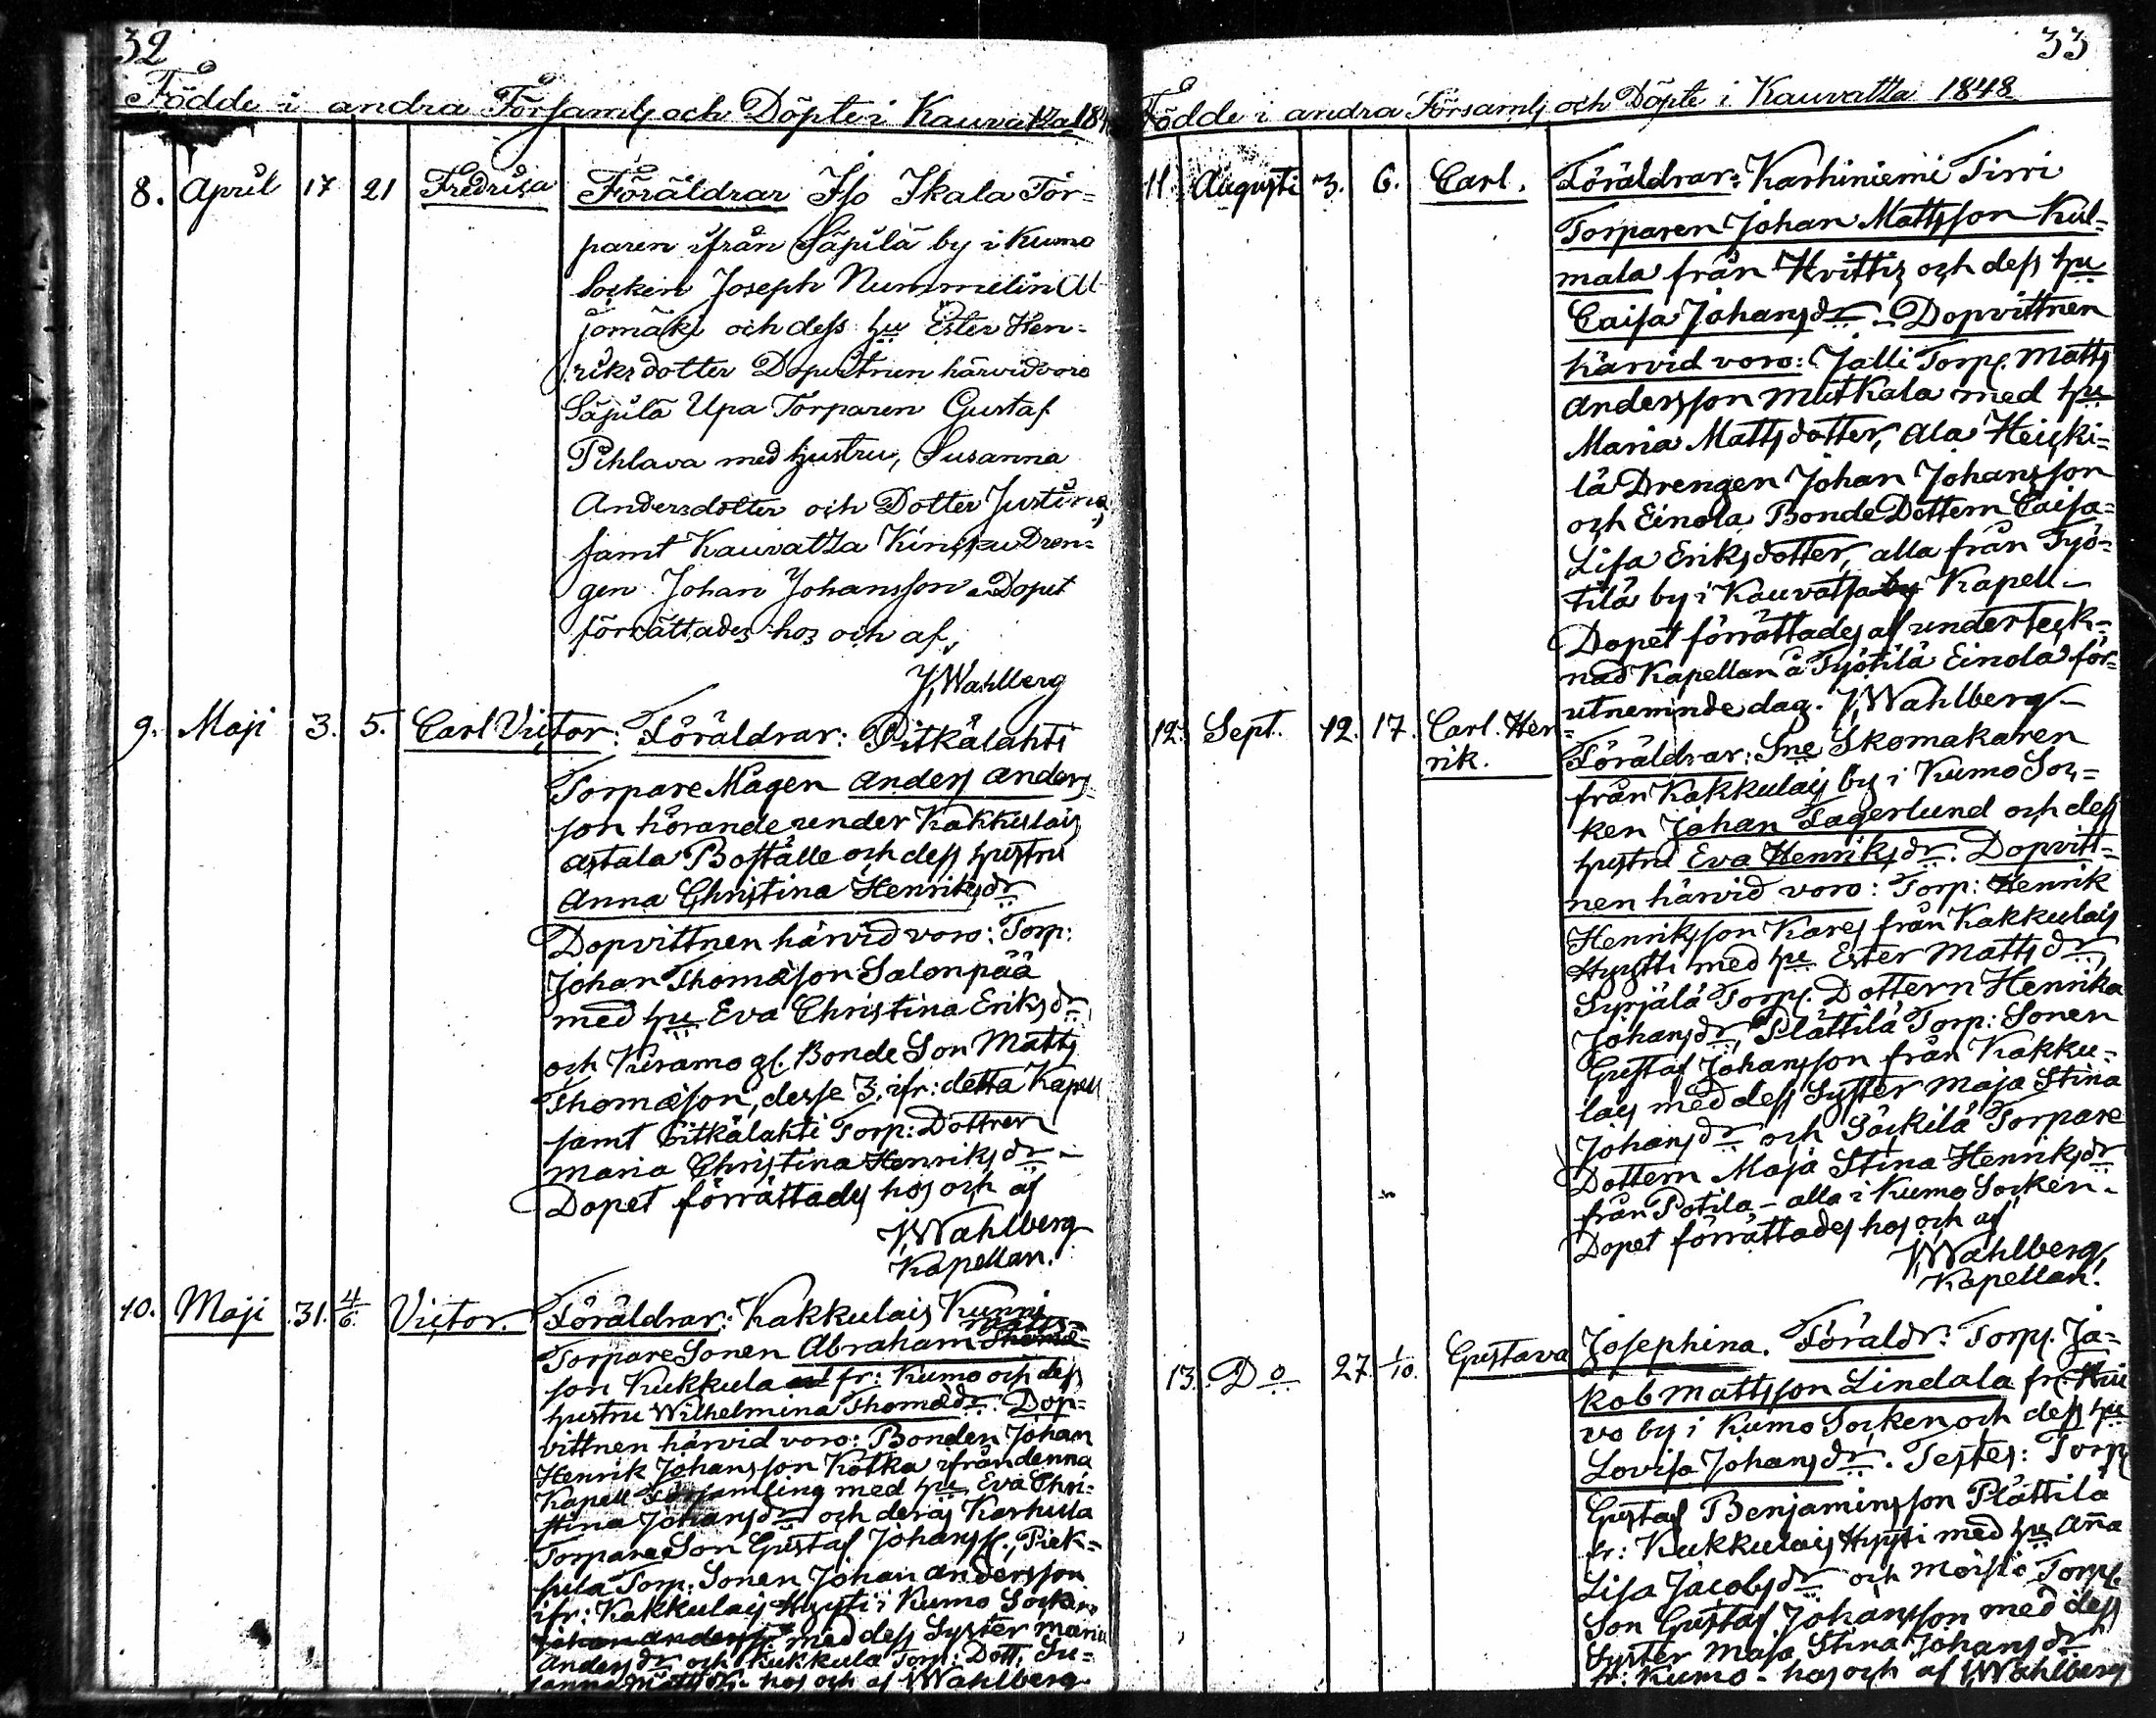 32
Födde i andra Församlg och Döpte i Kauvatza 184
8. April 17 21 Fredrica Föräldrar Iso Ikala Tor-
paren ifrån Säpilä by i Kumo
Socken Joseph Nummelin Al
jomäki och dess hu Ester Hen-
riksdotter Dopvittnen härvid voro
Säpilä Upa Torparen Gustaf
Pihlava med hustru, Susanna
Andersdotter och Dotter Justina,
samt Kauvatza Kinsku Dren-
gen Johan Johansson. Dopet
förrättades hos och af,
J, Wahlberg
9. Maji 3. 5. Carl Victor: Föräldrar: Pitkälahti
Torpare Magen Anders Anders-
son hörande under Kakkulais
Astala Boställe och dess hustru
Anna Christina Henriksdr
Dopvittnen härvid voro: Torp:
Johan Thomæson Salonpää
med hu Eva Christina Eriksdr,
och Kiramo gl. Bonde Son Matts
Thomæson, desse 3. ifr: detta Kapell
samt Pitkälahti Torp: Dottren
Maria Christina Henriksdr -
Dopet förrättades hos och af
J, Wahlberg
Kapellan.
10. Maji 31. 4/6. Victor. Föräldrar: Kakkulais Kunni
Matts-
Torpare Sonen Abraham Thomæ-
son Kukkula fr: Kumo och dess
hustru Wilhelmina Thomædr. Dop-
vittnen härvid voro: Bonden Johan
Henrik Johansson Kotka ifrån denna
Kapell Församling med hu Eva Chri-
stina Johansdr och deras Karhula
Torpare Son Gustaf Johanss., Piek-
sula Torp. Sonen Johan Andersson
ifr: Kakkulais Hyysti i Kumo Socken
Johan Anderss med dess Syster Maria
Andersdr och Kukkula Torp: Dott, Su-
sanna Mattsdr. hos och af J, Wahlberg
33
Födde i andra Församlg och Döpte i Kauvatza 1848
11. Augusti 3. 6. Carl. Föräldrar: Karhiniemi Tirri
Torparen Johan Mattsson Kul-
mala från Hvittis och dess hu
Caisa Johansdr - Dopvittnen
härvid voro: Jalli Torp. Matts
Andersson Mutkala med hu
Maria Mattsdotter, Ala Heicki-
lä Drengen Johan Johansson
och Einola Bonde Dottern Caisa-
Lisa Eriksdotter, alla från Työ-
tilä by i Kauvatsa by Kapell -
Dopet förrättades af underteck-
nad Kapellan å Työtilä Einola för-
utnemnde dag. J, Wahlberg -
12. Sept. 12. 17. Carl. Hen-
rik.
Föräldrar: Sne Skomakaren
från Kakkulais by i Kumo Soc-
ken Johan Fagerlund och dess
hustru Eva Henriksdr. Dopvitt-
nen härvid voro: Torp: Henrik
Henriksson Kares från Kakkulais
Hyysti med hu Ester Mattsdr,
Syrjälä Torp. Dottern Henrika
Johansdr, Plättilä Torp: Sonen
Gustaf Johansson från Kakku-
lais med dess Syster Maja Stina
Johansdr och Säckilä Torpare
Dottern Maja Stina Henriksdr
från Potila - alla i Kumo Socken.
Dopet förrättades hos och af
J, Wahlberg,
Kapellan.
13. Do 27. 1/10. Gustava Josephina. Föräldr: Torp. Ja-
kob Mattsson Lindala fr.
vo by i Kumo Socken och dess hu
Lovisa Johansdr. Testes: Torp
Gustaf Benjaminsson Plättilä
fr: Kukkulais Hyysti med hu Anna
Lisa Jacobsdr och Moisio Torp.
Son Gustaf Johansson med dess
Syster Maja Stina Johansdr
fr: Kumo - hos och af J, Wahlberg